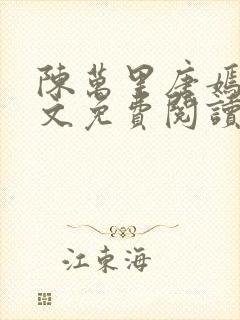 陳萬里唐嫣
文免費閱讀
江東海